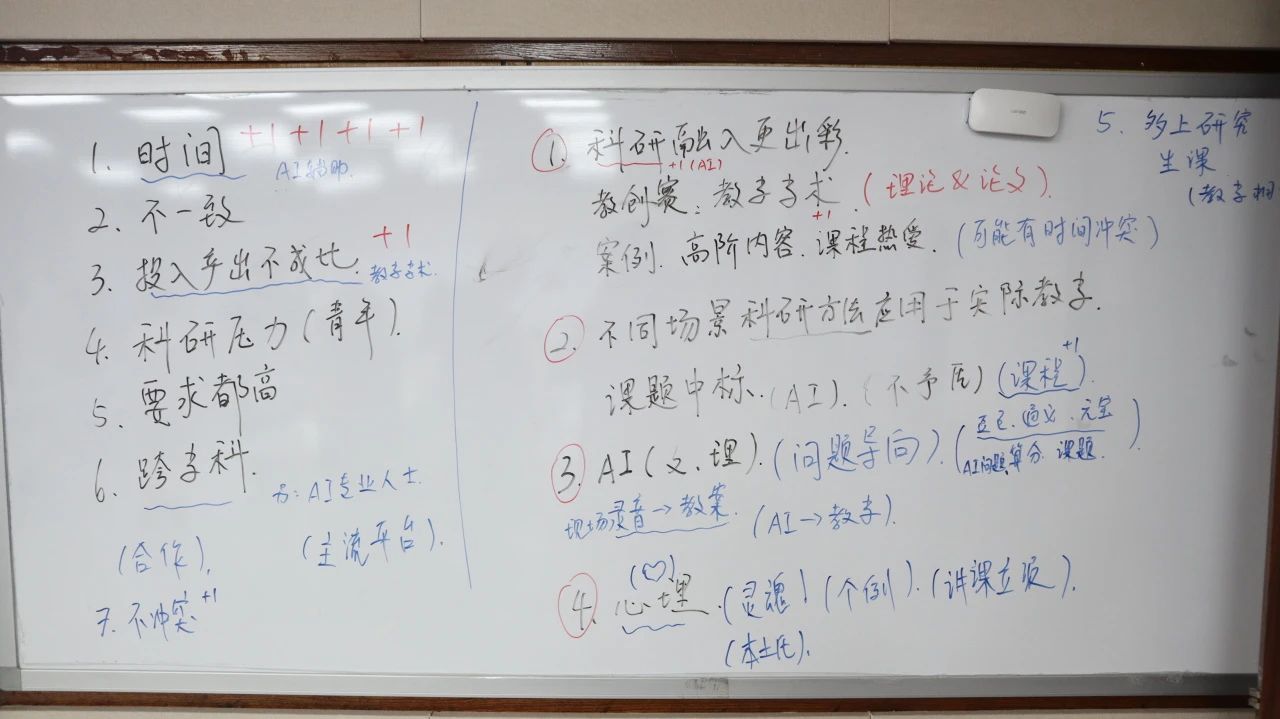 1. 时间 +1 +1 +1 +1
AI辅助.
2. 不一致
3. 投入产出不成比. +1
教学学术.
4. 科研压力(青年).
5. 要求都高
6. 跨学科.
方: AI专业人士.
(合作).
(主流平台).
7. 不冲突 +1
①. 科研融入更出彩.
+1 (AI)
教创赛: 教学学术. (理论&论文).
案例. 高阶内容. 课程热爱. +1 (可能有时间冲突)
②. 不同场景科研方法应用于实际教学.
课题中标. (AI). (不予) (课程). +1
③. AI(文、理). (问题导向). (豆包、通义、元宝
AI问题、算分、课题.)
现场录音→教案. (AI→教学).
(♡)
④. 心理. (灵魂! (个例). (讲课立项).
(本土化).
5. 多上研究
生课
(教学相